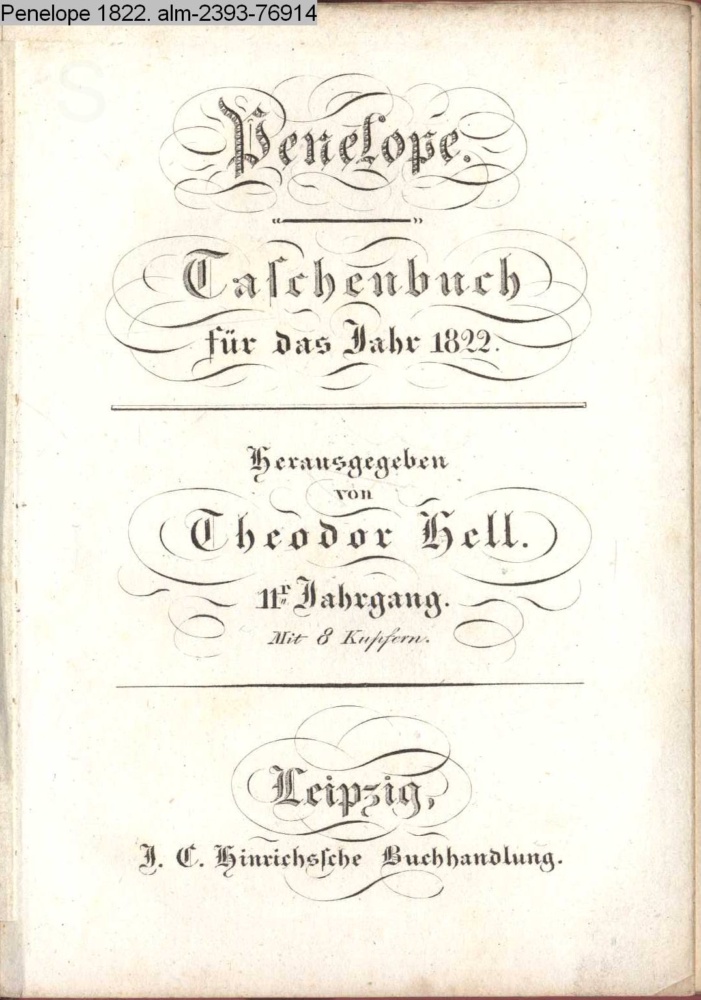 Penelope 1822. alm-2393-76914
Penelope.
Taſchenbuch
für das Jahr 1822.
Herausgegeben
von
Theodor Hell.
11r Jahrgang.
Mit 8 Kupfern.
Leipzig,
J. C. Hinrichsſche Buchhandlung.